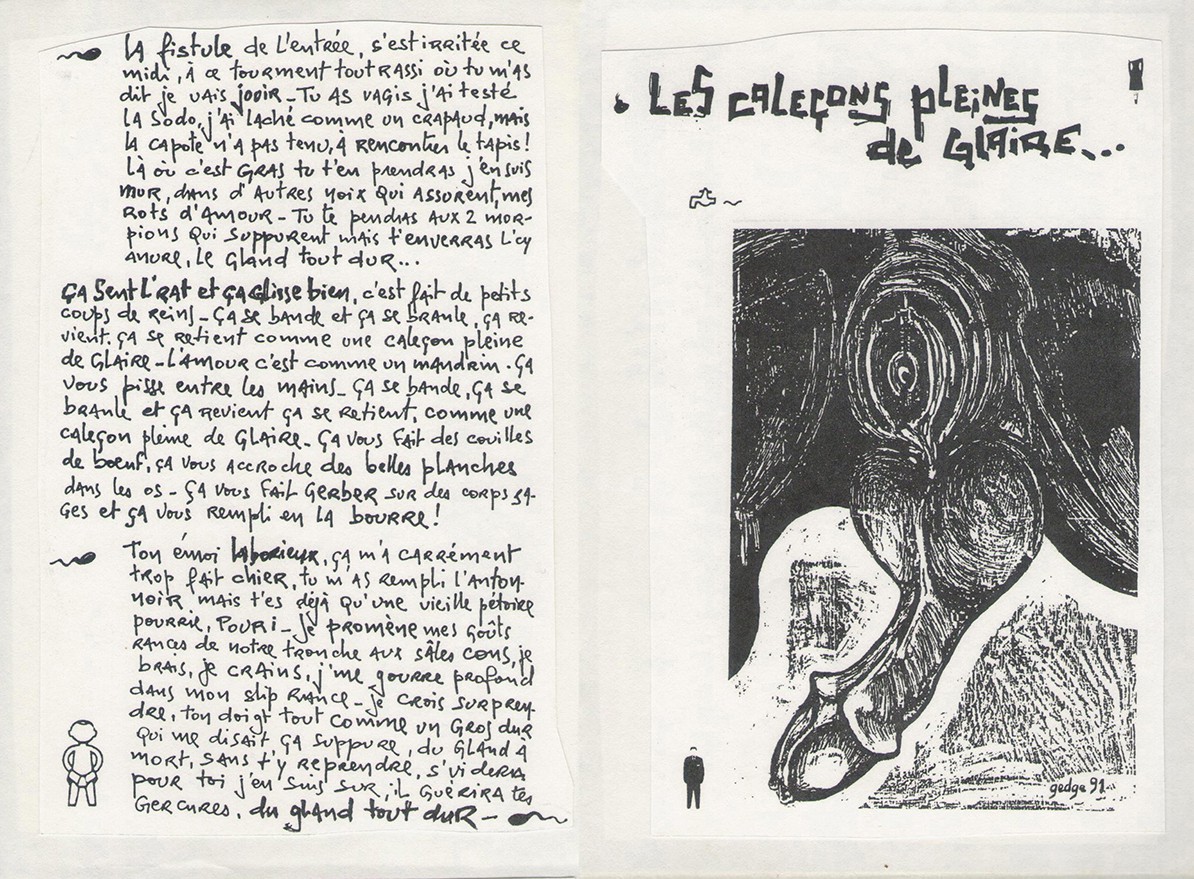 LA fistule de L'entrée, s'est irritée ce
midi, à ce tourment tout RASSI où tu m'as
dit je vais jouir - Tu AS VAGIS j'ai testé
LA Sodo, j'ai laché comme un CRAPAUD, mais
la capote n'a pas tenu, à rencontrer le tapis!
Là où c'est GRAS tu t'en prendras j'en suis
mur, dans d'Autres noix qui assurent, mes
ROTS d'AMOUR - Tu te pendras aux 2 mor-
pions qui suppurent, mais t'enverras L'cy
anure, Le Gland tout dur...
ÇA Sent L'RAT et ÇA Glisse bien, c'est fait de petits
coups de reins - ÇA se bande et ÇA se branle, ÇA re-
vient. ÇA se retient comme une caleçon pleine
de GLAIRE - L'AMOUR c'est comme un mandrin - ÇA
vous pisse entre les mains - ÇA se bande, ÇA se
branle et ÇA revient ÇA se retient, comme une
caleçon pleine de GLAIRE - ÇA vous fait des couilles
de boeuf, ÇA vous accroche des belles planches
dans les os - ÇA vous fait GERBER sur des corps SA-
GES et ÇA vous rempli en LA bourre!
Ton émoi laborieux, ÇA m'a CARRÉMENT
trop fait chier, tu m'AS rempli l'Anton-
noir mais t'es déjà qu'une vieille pétoire
pourrie, POURI - je promène mes goûts
rances de notre tronche aux sâles cons, je
brais, je crains, j'me gourre profond
dans mon slip rance - je crois surpren-
dre, ton doigt tout comme un Gros dur
qui me disait ÇA suppure, du GLAND à
mort, sans t'y reprendre, s'videra
pour toi j'en suis sur, il Guérira tes
Gercures, du gland tout dur -
LES CALEÇONS pLEiNES
de GLAIRE...
gedge 91